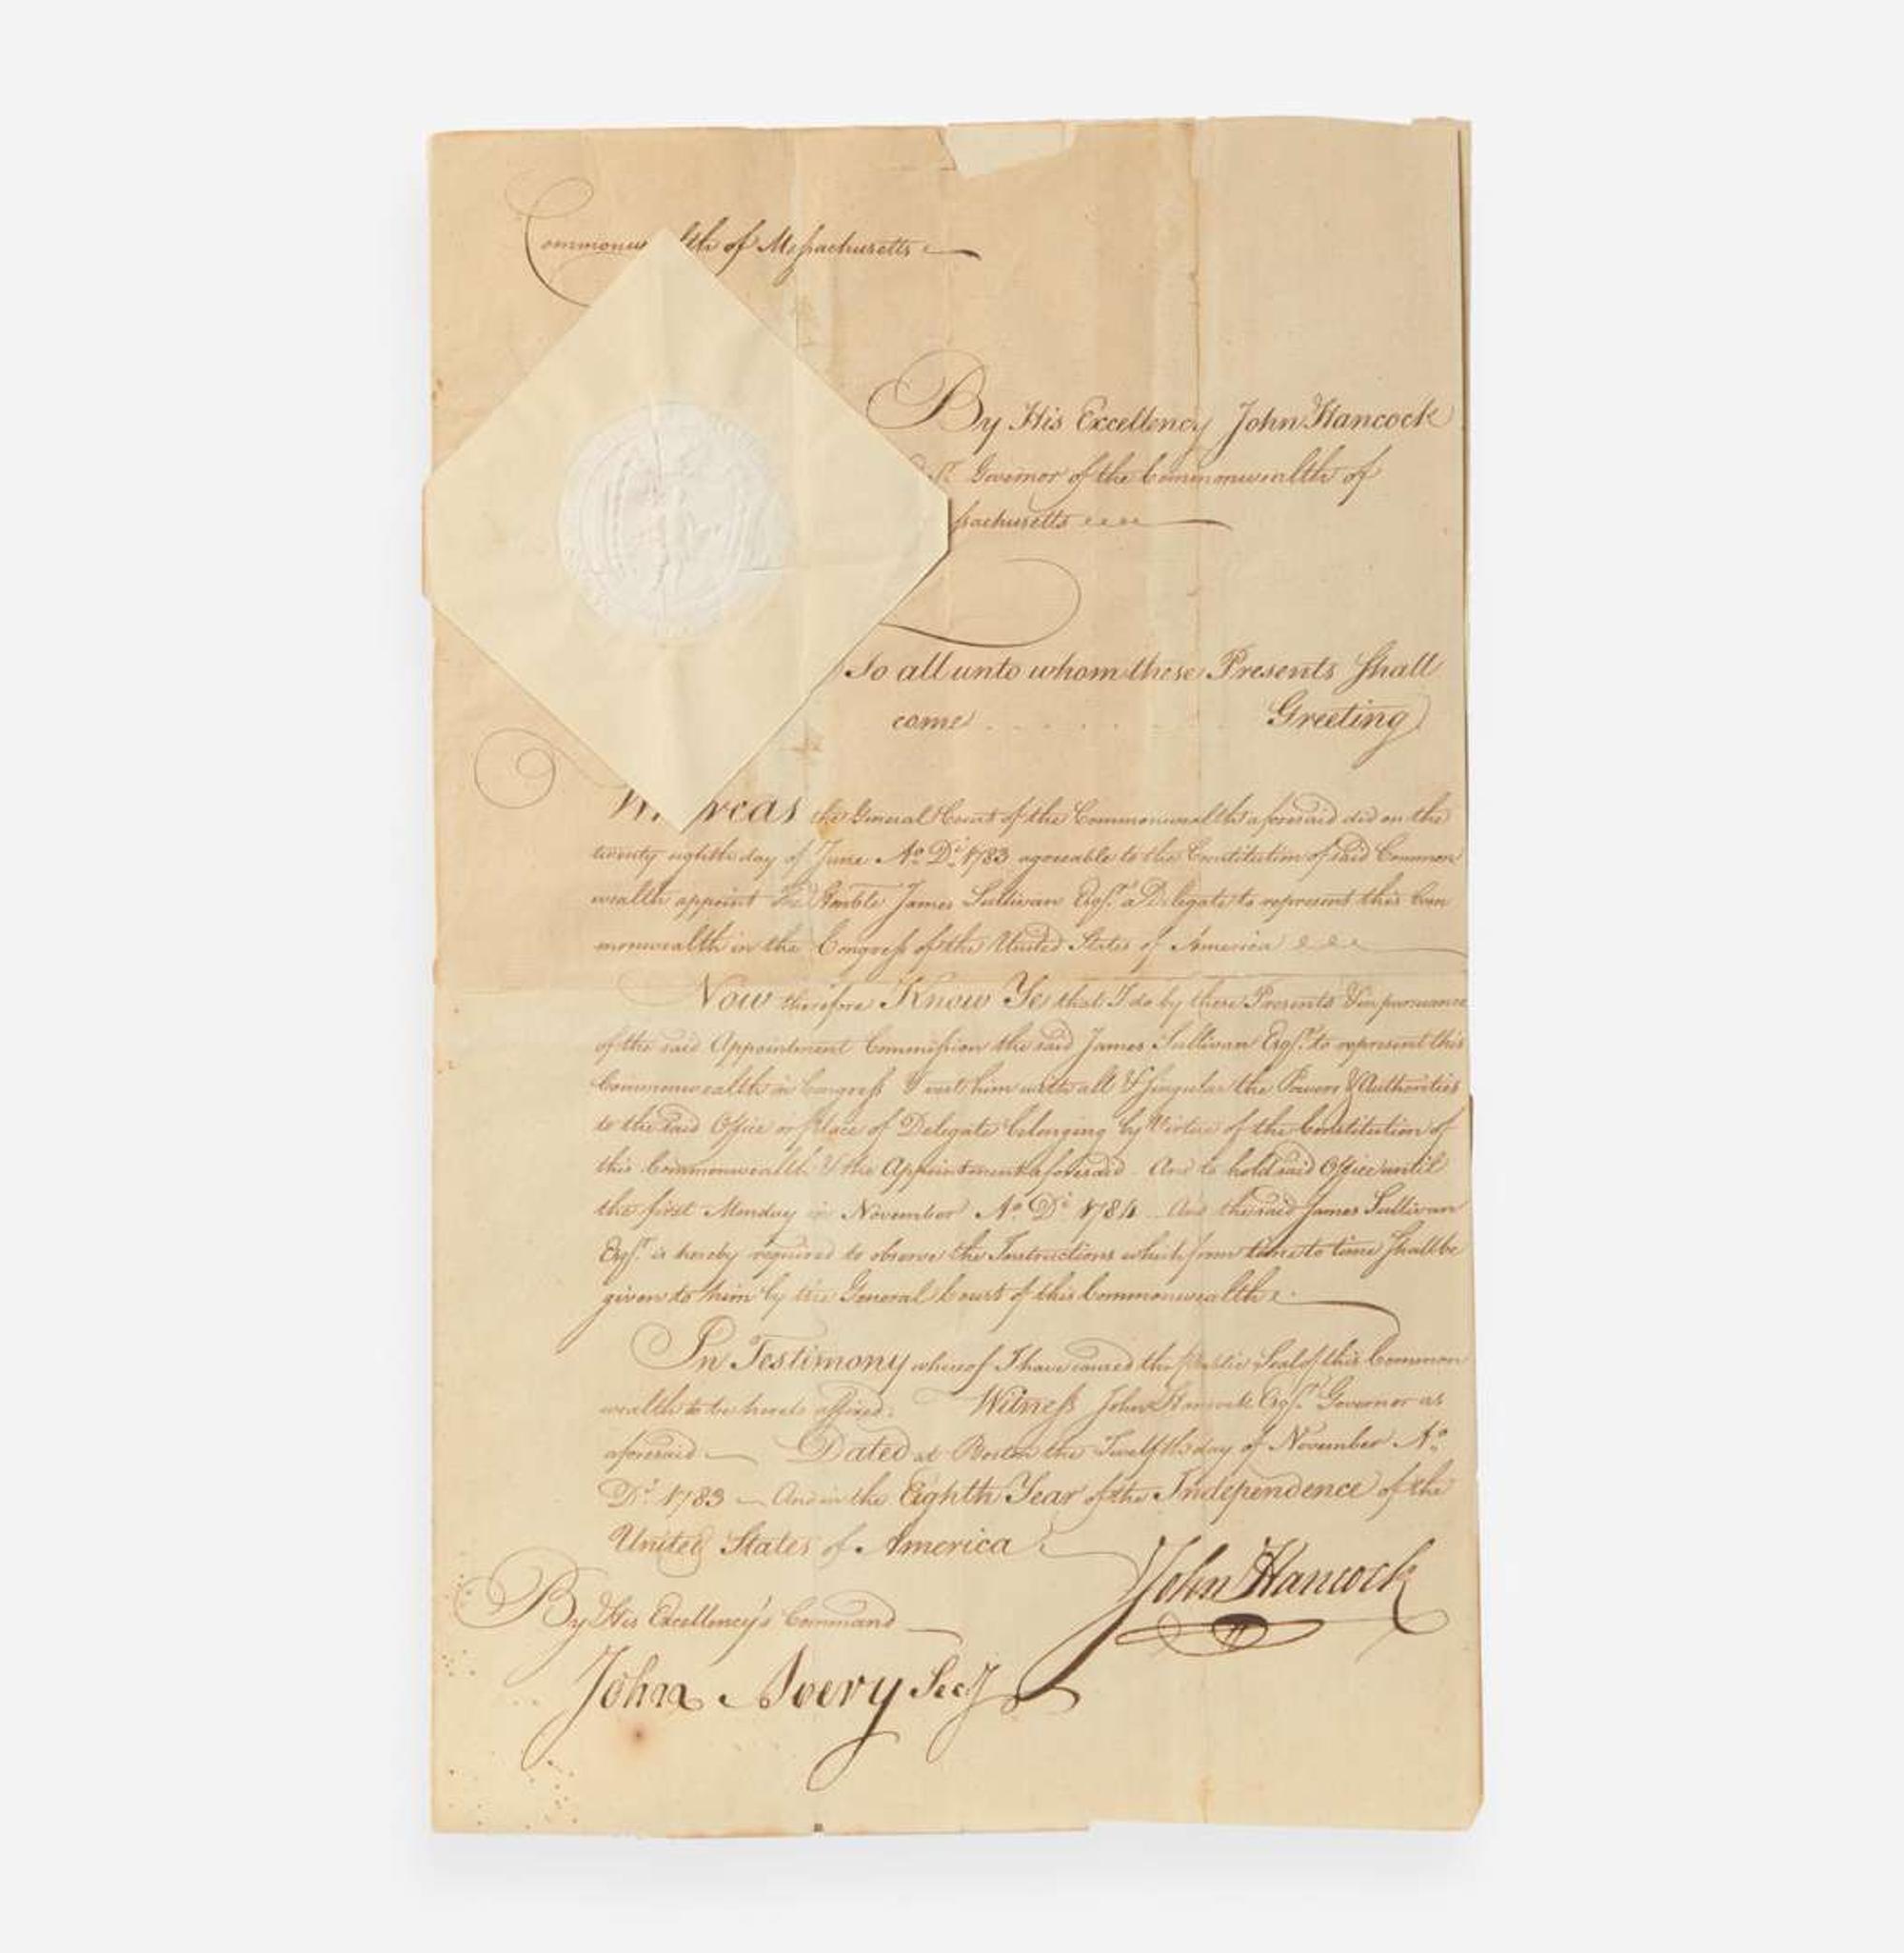 Commonw lth of Massachusetts
By His Excellency John Hancock
Governor of the Commonwealth of
ssachusetts
To all unto whom these Presents shall
come . . . . . . Greeting
Wh reas the General Court of the Commonwealth aforesaid did on the
twenty eighth day of June Ao. Di. 1783 agreeable to the Constitution of said Common
wealth appoint The Honble James Sullivan Esqr. a Delegate to represent this Com
monwealth in the Congress of the United States of America
Now therefore Know Ye that I do by these Presents & in pursuance
of the said Appointment Commission the said James Sullivan Esqr. to represent this
Commonwealth in Congress & vest him with all & singular the Powers & Authorities
to the said Office or place of Delegate belonging by Virtue of the Constitution of
this Commonwealth & the Appointment aforesaid And to hold said Office until
the first Monday in November Ao. Di. 1784 And the said James Sullivan
Esqr. is hereby required to observe the Instructions which from time to time shall be
given to him by the General Court of this Commonwealth
In Testimony whereof I have caused the Public Seal of this Common
wealth to be hereto affixed. Witness John Hancock Esqr. Governor as
aforesaid — Dated at Boston the Twelfth day of November Ao.
Di. 1783 — And in the Eighth Year of the Independence of the
United States of America
John Hancock
By His Excellency's Command
John Avery Secy